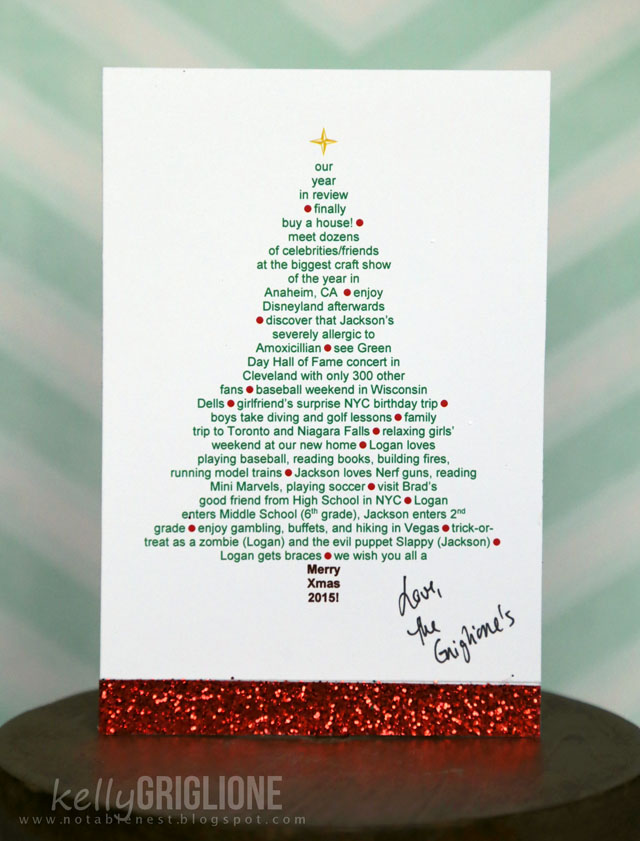 our
year
in review
● finally
buy a house! ●
meet dozens
of celebrities/friends
at the biggest craft show
of the year in
Anaheim, CA ● enjoy
Disneyland afterwards
● discover that Jackson's
severely allergic to
Amoxicillian ● see Green
Day Hall of Fame concert in
Cleveland with only 300 other
fans ● baseball weekend in Wisconsin
Dells ● girlfriend's surprise NYC birthday trip ●
boys take diving and golf lessons ● family
trip to Toronto and Niagara Falls ● relaxing girls'
weekend at our new home ● Logan loves
playing baseball, reading books, building fires,
running model trains ● Jackson loves Nerf guns, reading
Mini Marvels, playing soccer ● visit Brad's
good friend from High School in NYC ● Logan
enters Middle School (6th grade), Jackson enters 2nd
grade ● enjoy gambling, buffets, and hiking in Vegas ● trick-or-
treat as a zombie (Logan) and the evil puppet Slappy (Jackson) ●
Logan gets braces ● we wish you all a
Merry
Xmas
2015!
Love,
the
Griglione's
kellyGRIGLIONE
www.notablenest.blogspot.com